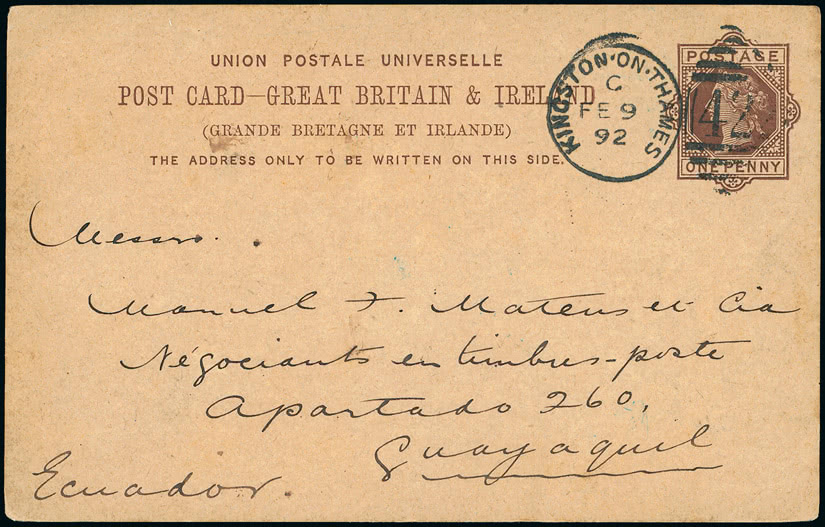 UNION POSTALE UNIVERSELLE
POST CARD—GREAT BRITAIN & IRELAND
(GRANDE BRETAGNE ET IRLANDE)
THE ADDRESS ONLY TO BE WRITTEN ON THIS SIDE.
KINGSTON·ON·THAMES
C
FE 9
92
POSTAGE
42
ONE PENNY
Messrs.
Manuel F. Mateus et Cia
Négociants en timbres-poste
Apartado 260,
Guayaquil
Ecuador.